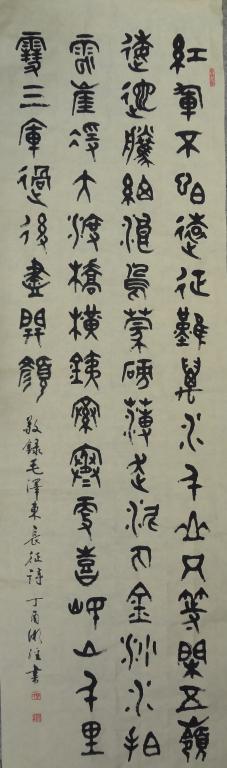 紅軍不怕遠征難萬水千山只等閑五嶺
逶迤騰細浪烏蒙磅礴走泥丸金沙水拍
雲崖暖大渡橋橫鐵索寒更喜岷山千里
雪三軍過後盡開顏
敬錄毛澤東長征詩 丁酉 書